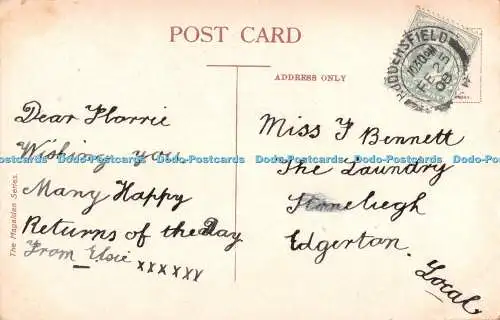 POST CARD
ADDRESS ONLY
HUDDERSFIELD
FE 25
08
Dear Florrie
Wishing you
Many Happy
Returns of the Day
From Elsie xxxxxx
Miss F Bennett
The Laundry
Stoneleigh
Edgerton.
Local
The Magalden Series.
Dodo-Postcards Dodo-Postcards Dodo-Postcards Dodo-Postcards Dodo-Postcards Dodo-Postcards